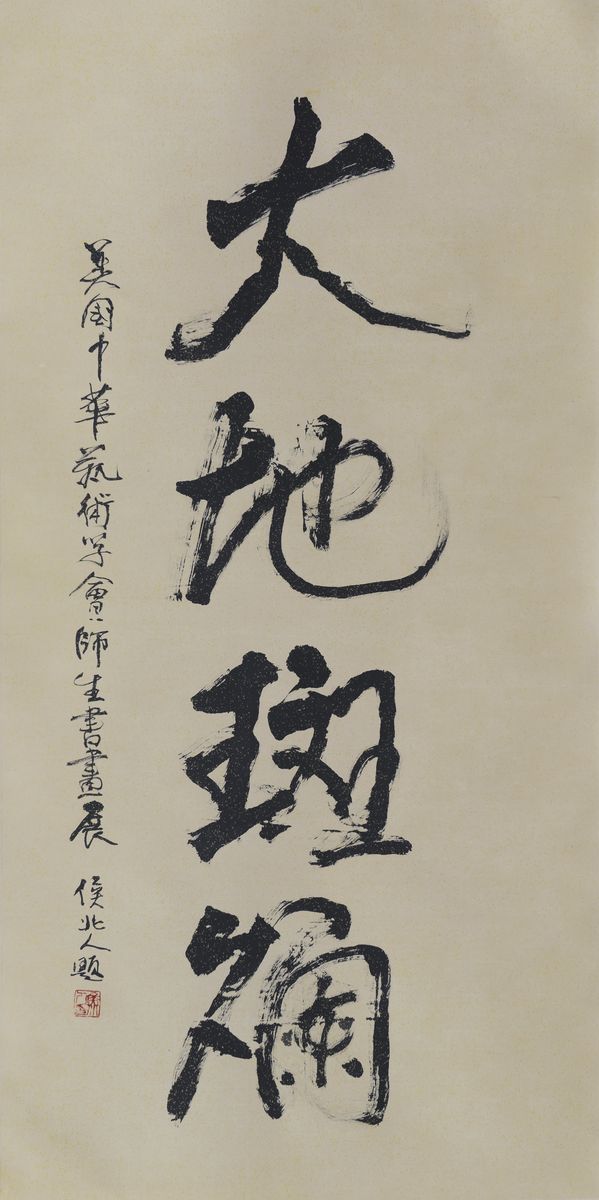 大地斑斕
美国中華藝術学會師生書畫展 侯北人題